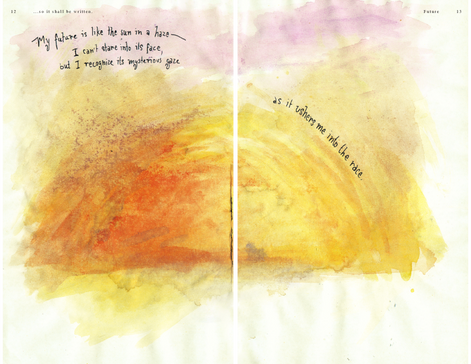 12 ...so it shall be written.
Future 13
My future is like the sun in a haze—
I can't stare into its face,
but I recognize its mysterious gaze
as it ushers me into the race.